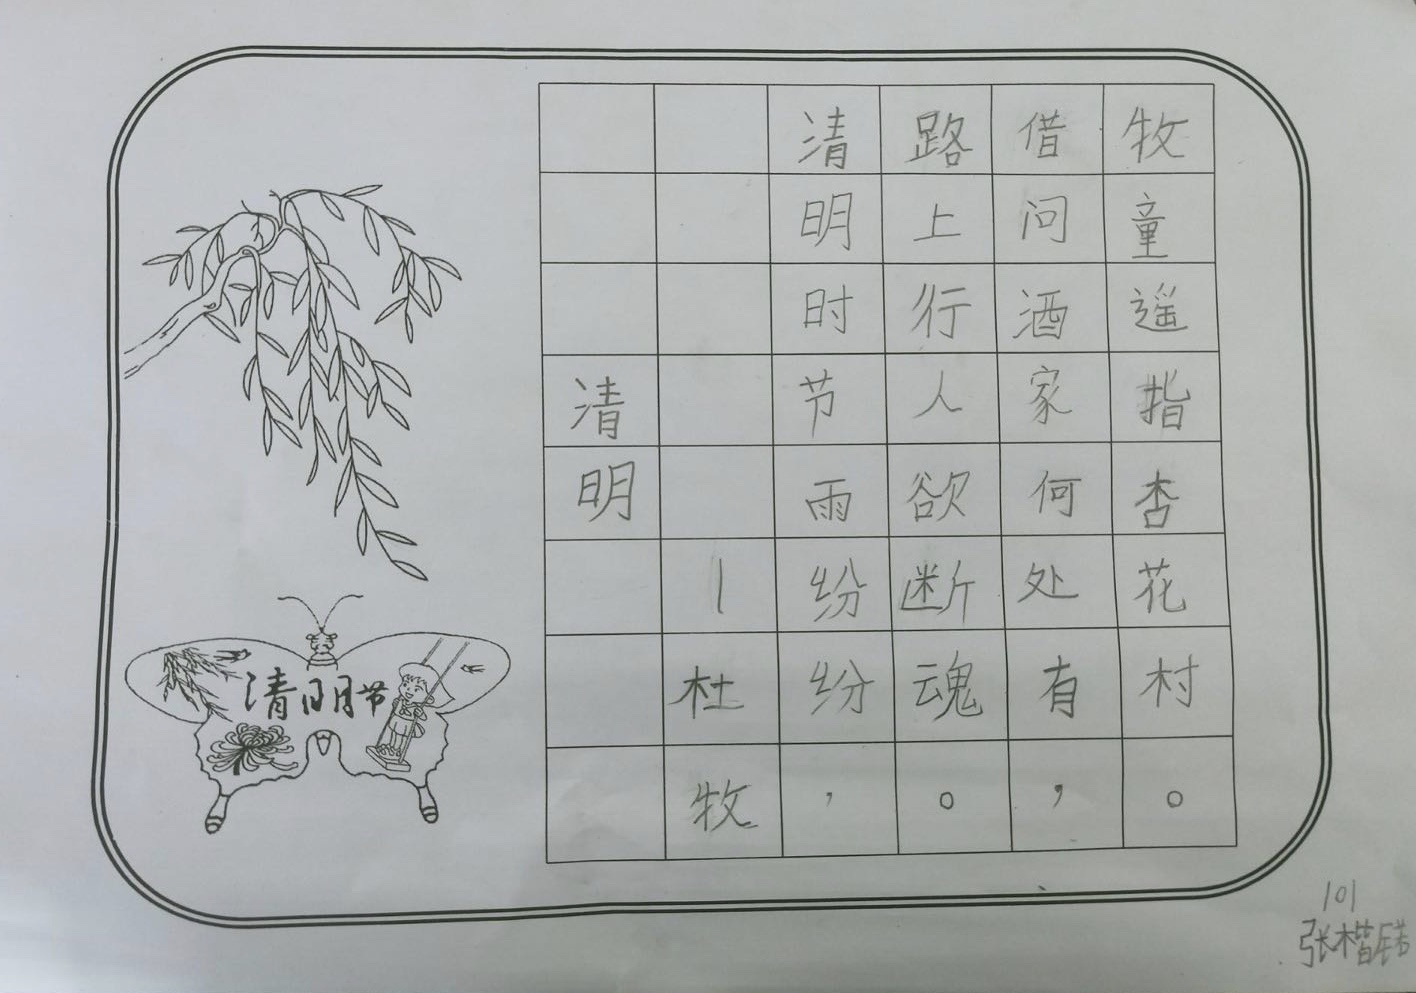 清明
—杜牧
清明时节雨纷纷，
路上行人欲断魂。
借问酒家何处有，
牧童遥指杏花村。
清明节
101
张楷